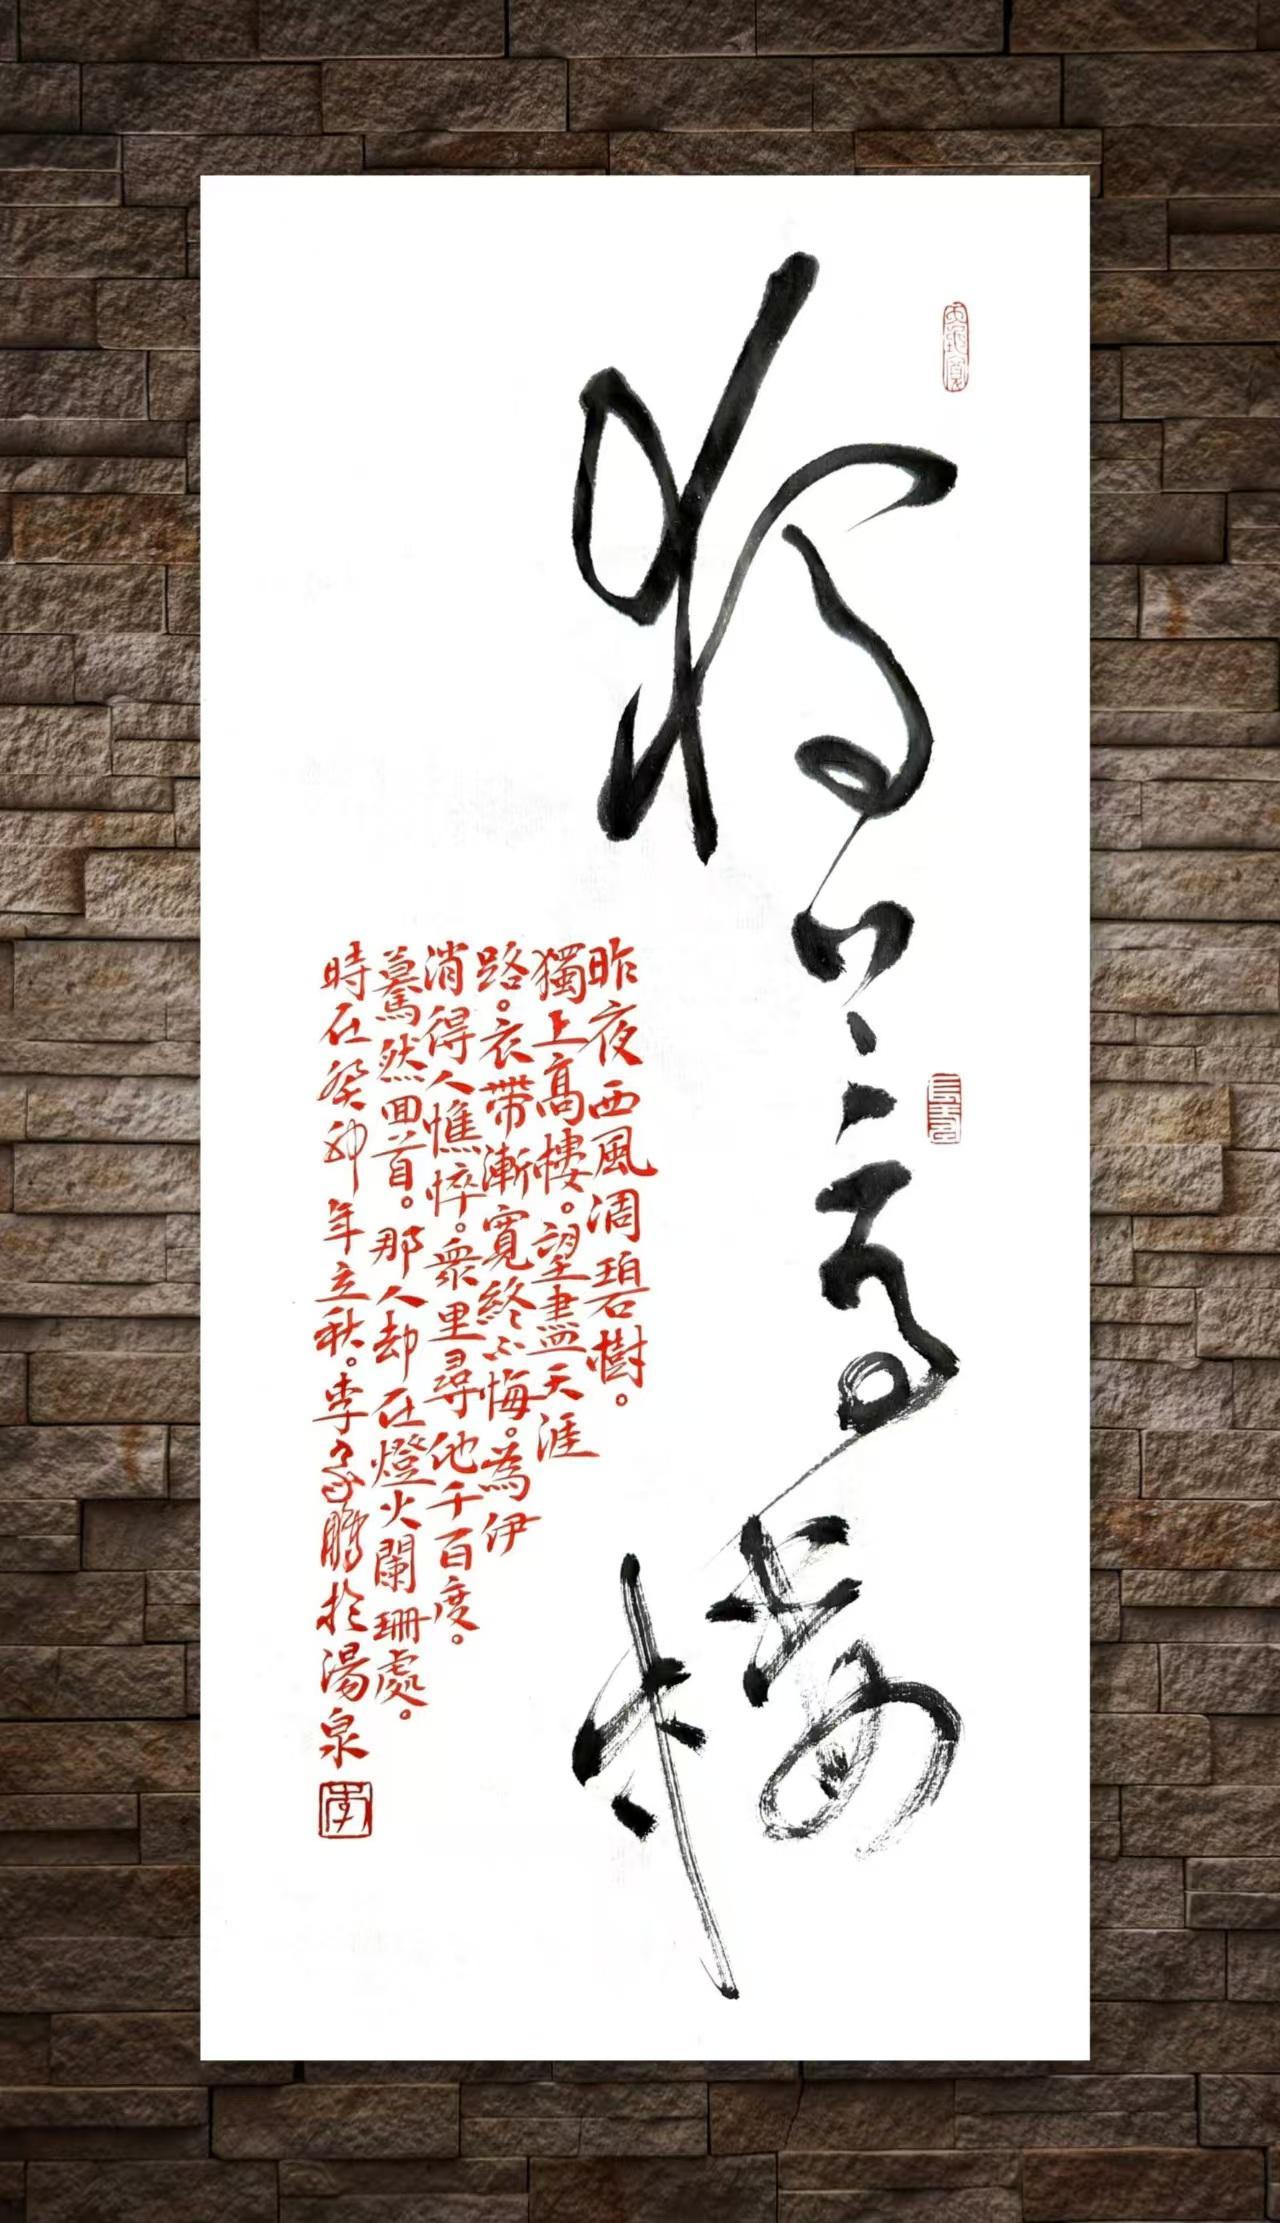 獨上高樓
昨夜西風凋碧樹。
獨上高樓。望盡天涯
路。衣帶漸寬終不悔。為伊
消得人憔悴。衆里尋他千百度。
驀然回首。那人却在燈火闌珊處。
時在癸卯年立秋。李家鵬於湯泉
李